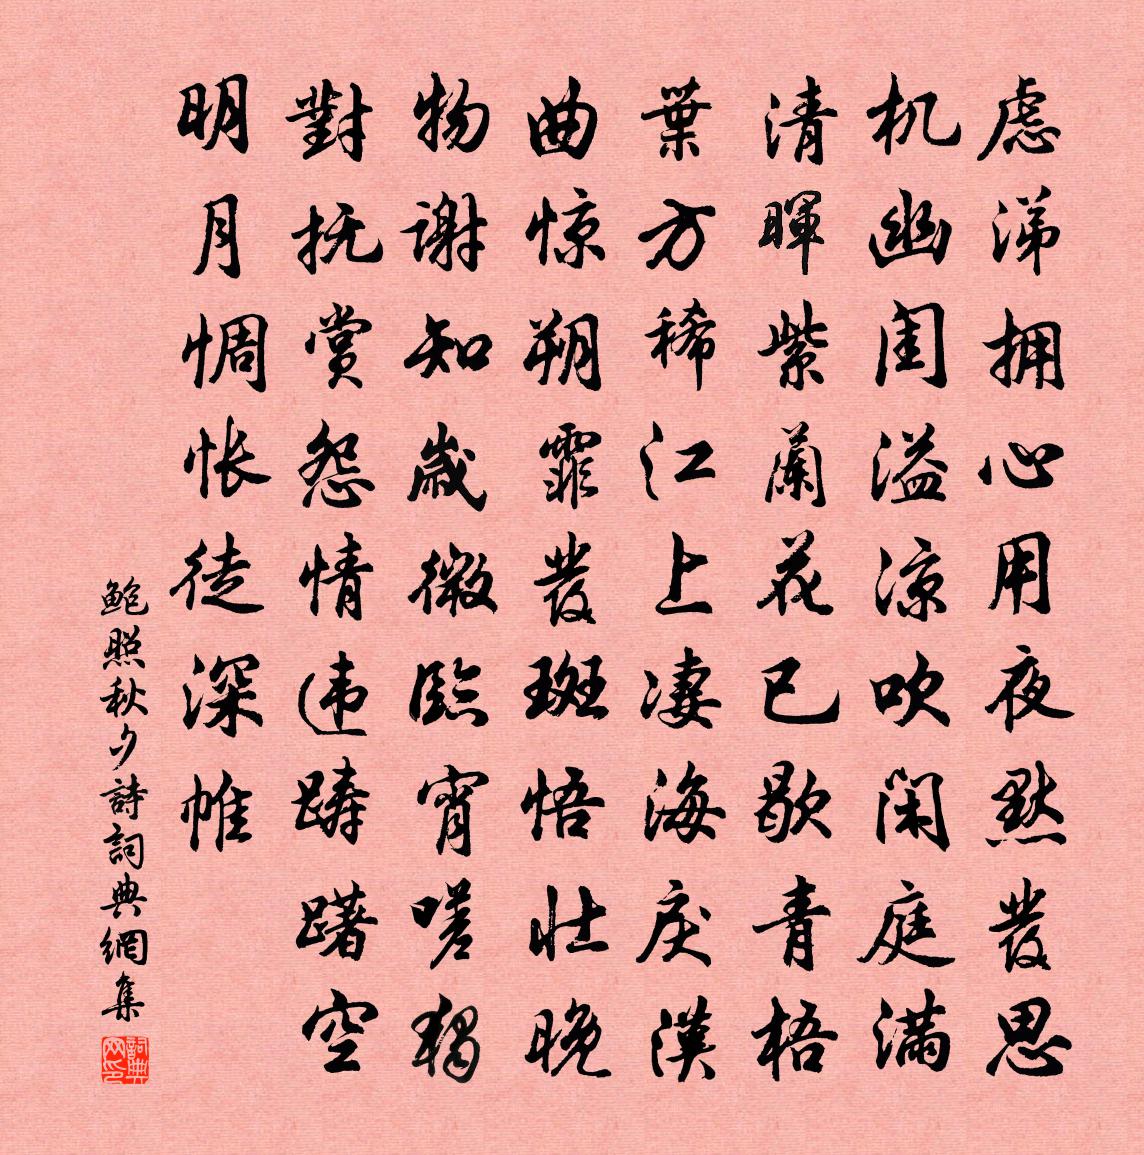 慮涕拥心用夜默發思
机幽闺溢涼吹闲庭滿
清暉紫蘭花已歇青梧
葉方稀江上凄海戾漢
曲惊朔霏發斑悟壯晚
物谢知歲微臨宵嗟獨
對抚赏怨情违躊躇空
明月惆怅徒深帷
鲍照秋夕詩詞典網集
詞典网印